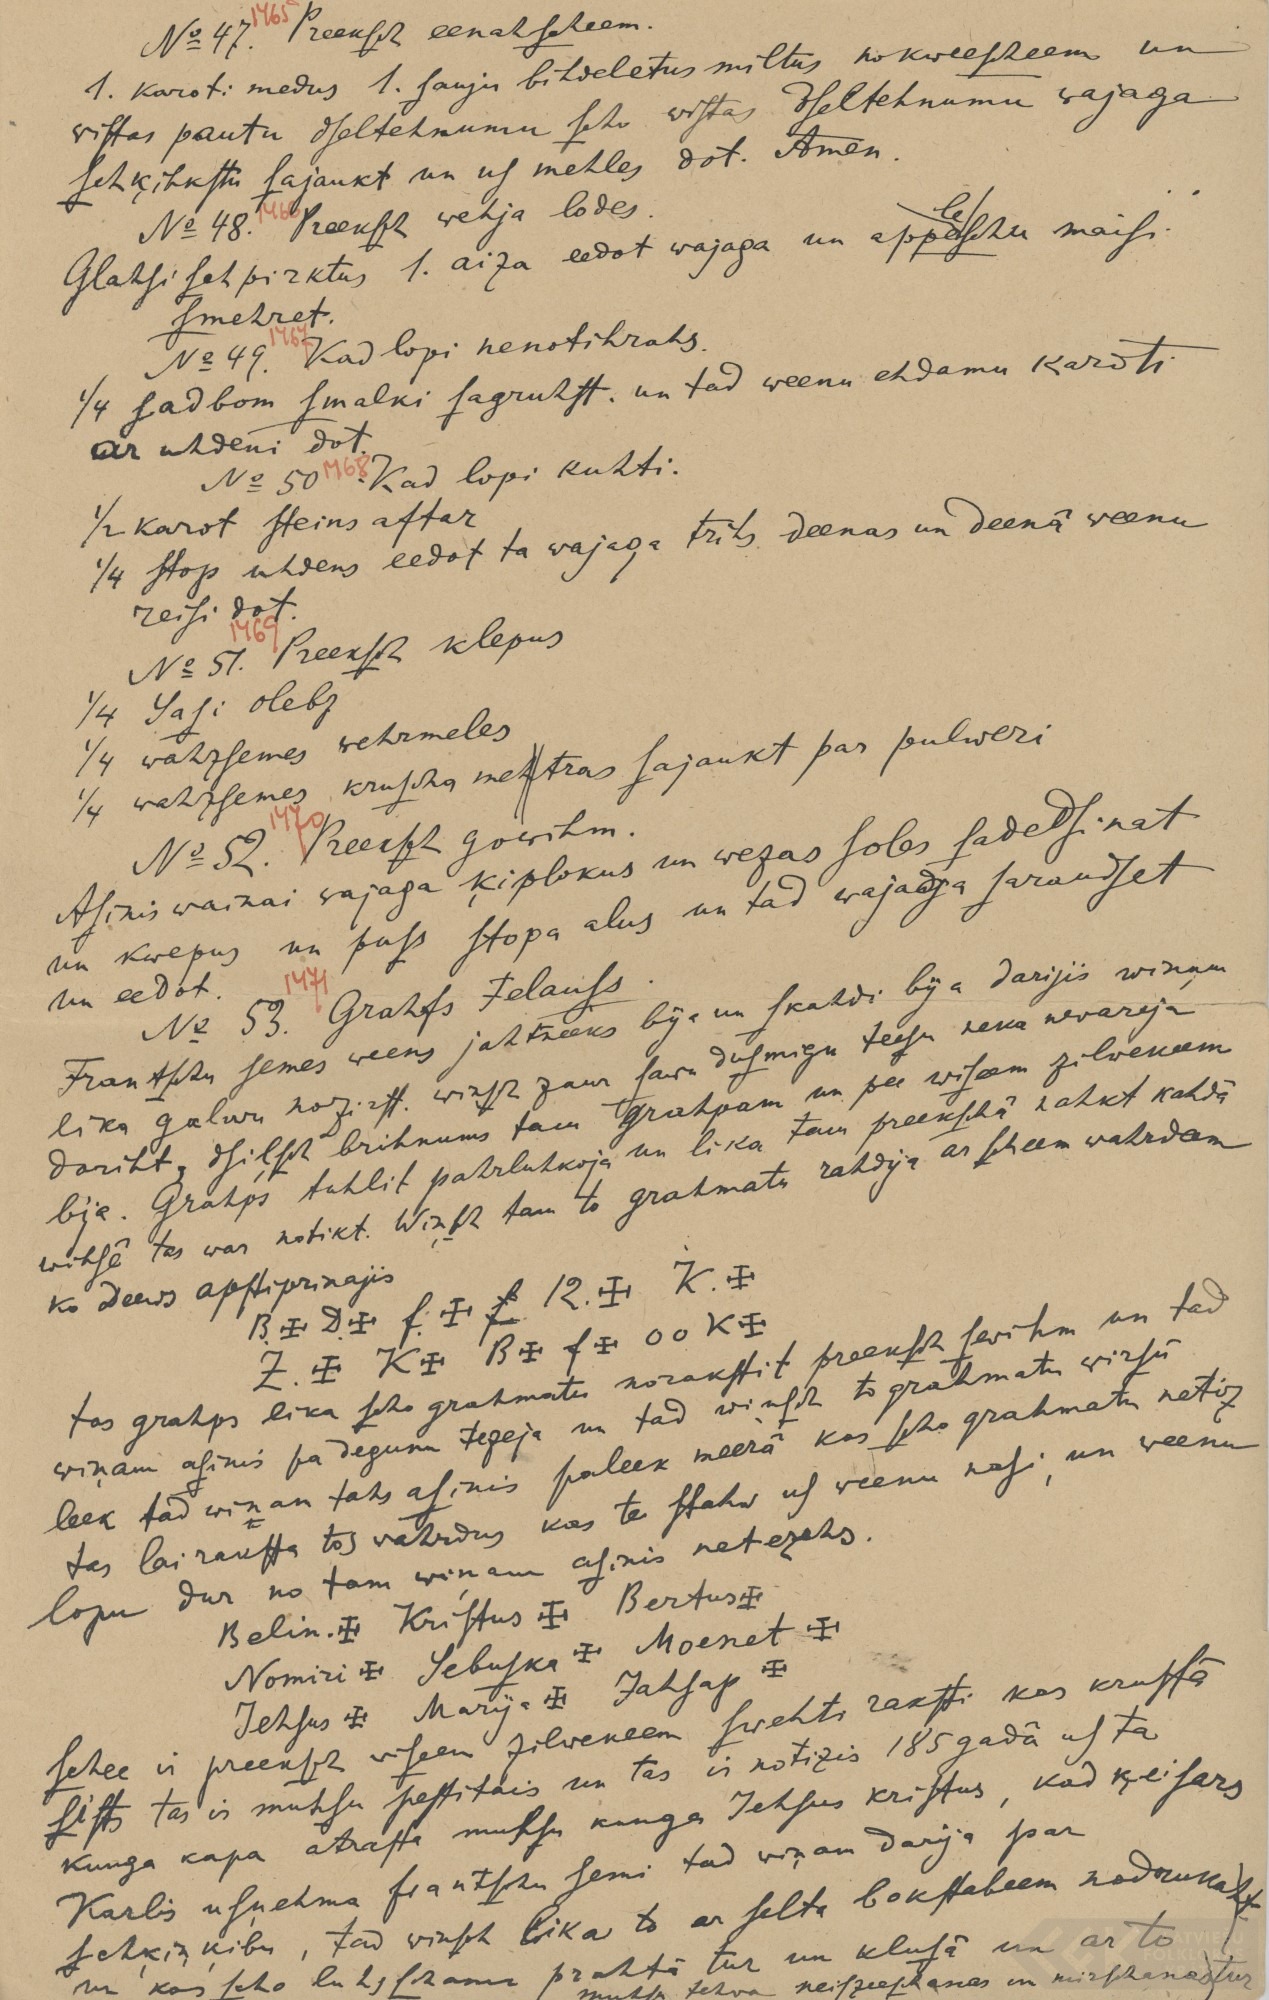 № 47. 1465 Preeksch eenahscheem.
1. karoti medus 1. sauju bihdeletus miltus no kweescheem un
wistas pautu dseltehnumu scho wistas dseltehnumu wajaga
schķihksti sajaukt un us mehles dot. Amen.
№ 48. 1466 Preeksch wehja lodes.
Glahsi sehpirktus 1. aiza eedot wajaga un appeschu maisi
smehret.
№ 49. 1467 Kad lopi nenotihrahs.
1/4 sadbom smalki sagruhst. un tad weenu ehdamu karoti
ar uhdeni dot.
№ 50 1468. Kad lopi kuhti.
1/2 karot steins aftar
1/4 stop uhdens eedot ta wajaga trihs deenas un deenā weenu
reisi dot.
№ 51. 1469 Preeksch klepus
1/4 Sasi olebz
1/4 wahzsemes wehrmeles
1/4 wahzsemes kruscha mehtras sajaukt par pulweri
№ 52. 1470 Preeksch gowihm.
Asinis wainai wajaga ķiplokus un wezas soles sadedsinat
un kwepus un puss stopa alus un tad wajaga saraudset
un eedot.
№ 53. 1471 Grahfs Felauss.
Frantschu semes weens jahtneeks bija un skahdi bija darijis wiņam
lika galwu nozirst. winsch zaur sawu dusmigu teesu neka nevareja
dariht, dsiļsch brihnums tam grahpam un pee wiseem zilwekeem
bija. Grahps tuhlit pahrluhkoja un lika tam preekschā nahkt kahdā
wihsē tas war notikt. Wiņsch tam to grahmatu rahdija ar scheem wahrdeem
ko deews apstiprinajis
B. ✠ D. ✠ f. ✠ f 12. ✠ K. ✠
Z. ✠ K ✠ B ✠ f ✠ oo K ✠
tas grahps lika scho grahmatu norakstit preeksch sewihm un tad
wiņam asinis pa degunu tezeja un tad winsch to grahmatu wirsū
leek tad wiņam tahs asinis paleek meerā kas scho grahmatu netiz
tas lai raksta tos wahrdus kas te stahw us weenu nasi, un weenu
lopu dur no tam wiņam asinis netezehs.
Belin. ✠ Kristus ✠ Bertus ✠
Nomiri ✠ Sebuska ✠ Moenet ✠
Jehsus ✠ Marija ✠ Jahsap ✠
schee ir preeksch wiseem zilwekeem swehti raksti kas krustā
sists tas ir muhsu pestitais un tas ir notizis 185 gadā us ta
kunga kapa atrasta muhsu kunga Jehsus kristus, kad ķeisars
Karlis usņehma frantschu semi tad wiņam darija par
schķiņķibu, tad winsch lika to ar selta bokstabeem nodrukaht
un kas scho luhgschanu prahtā tur un klusā un ar to
muhsu tehwa neiszeeschanas un mirschanas tur